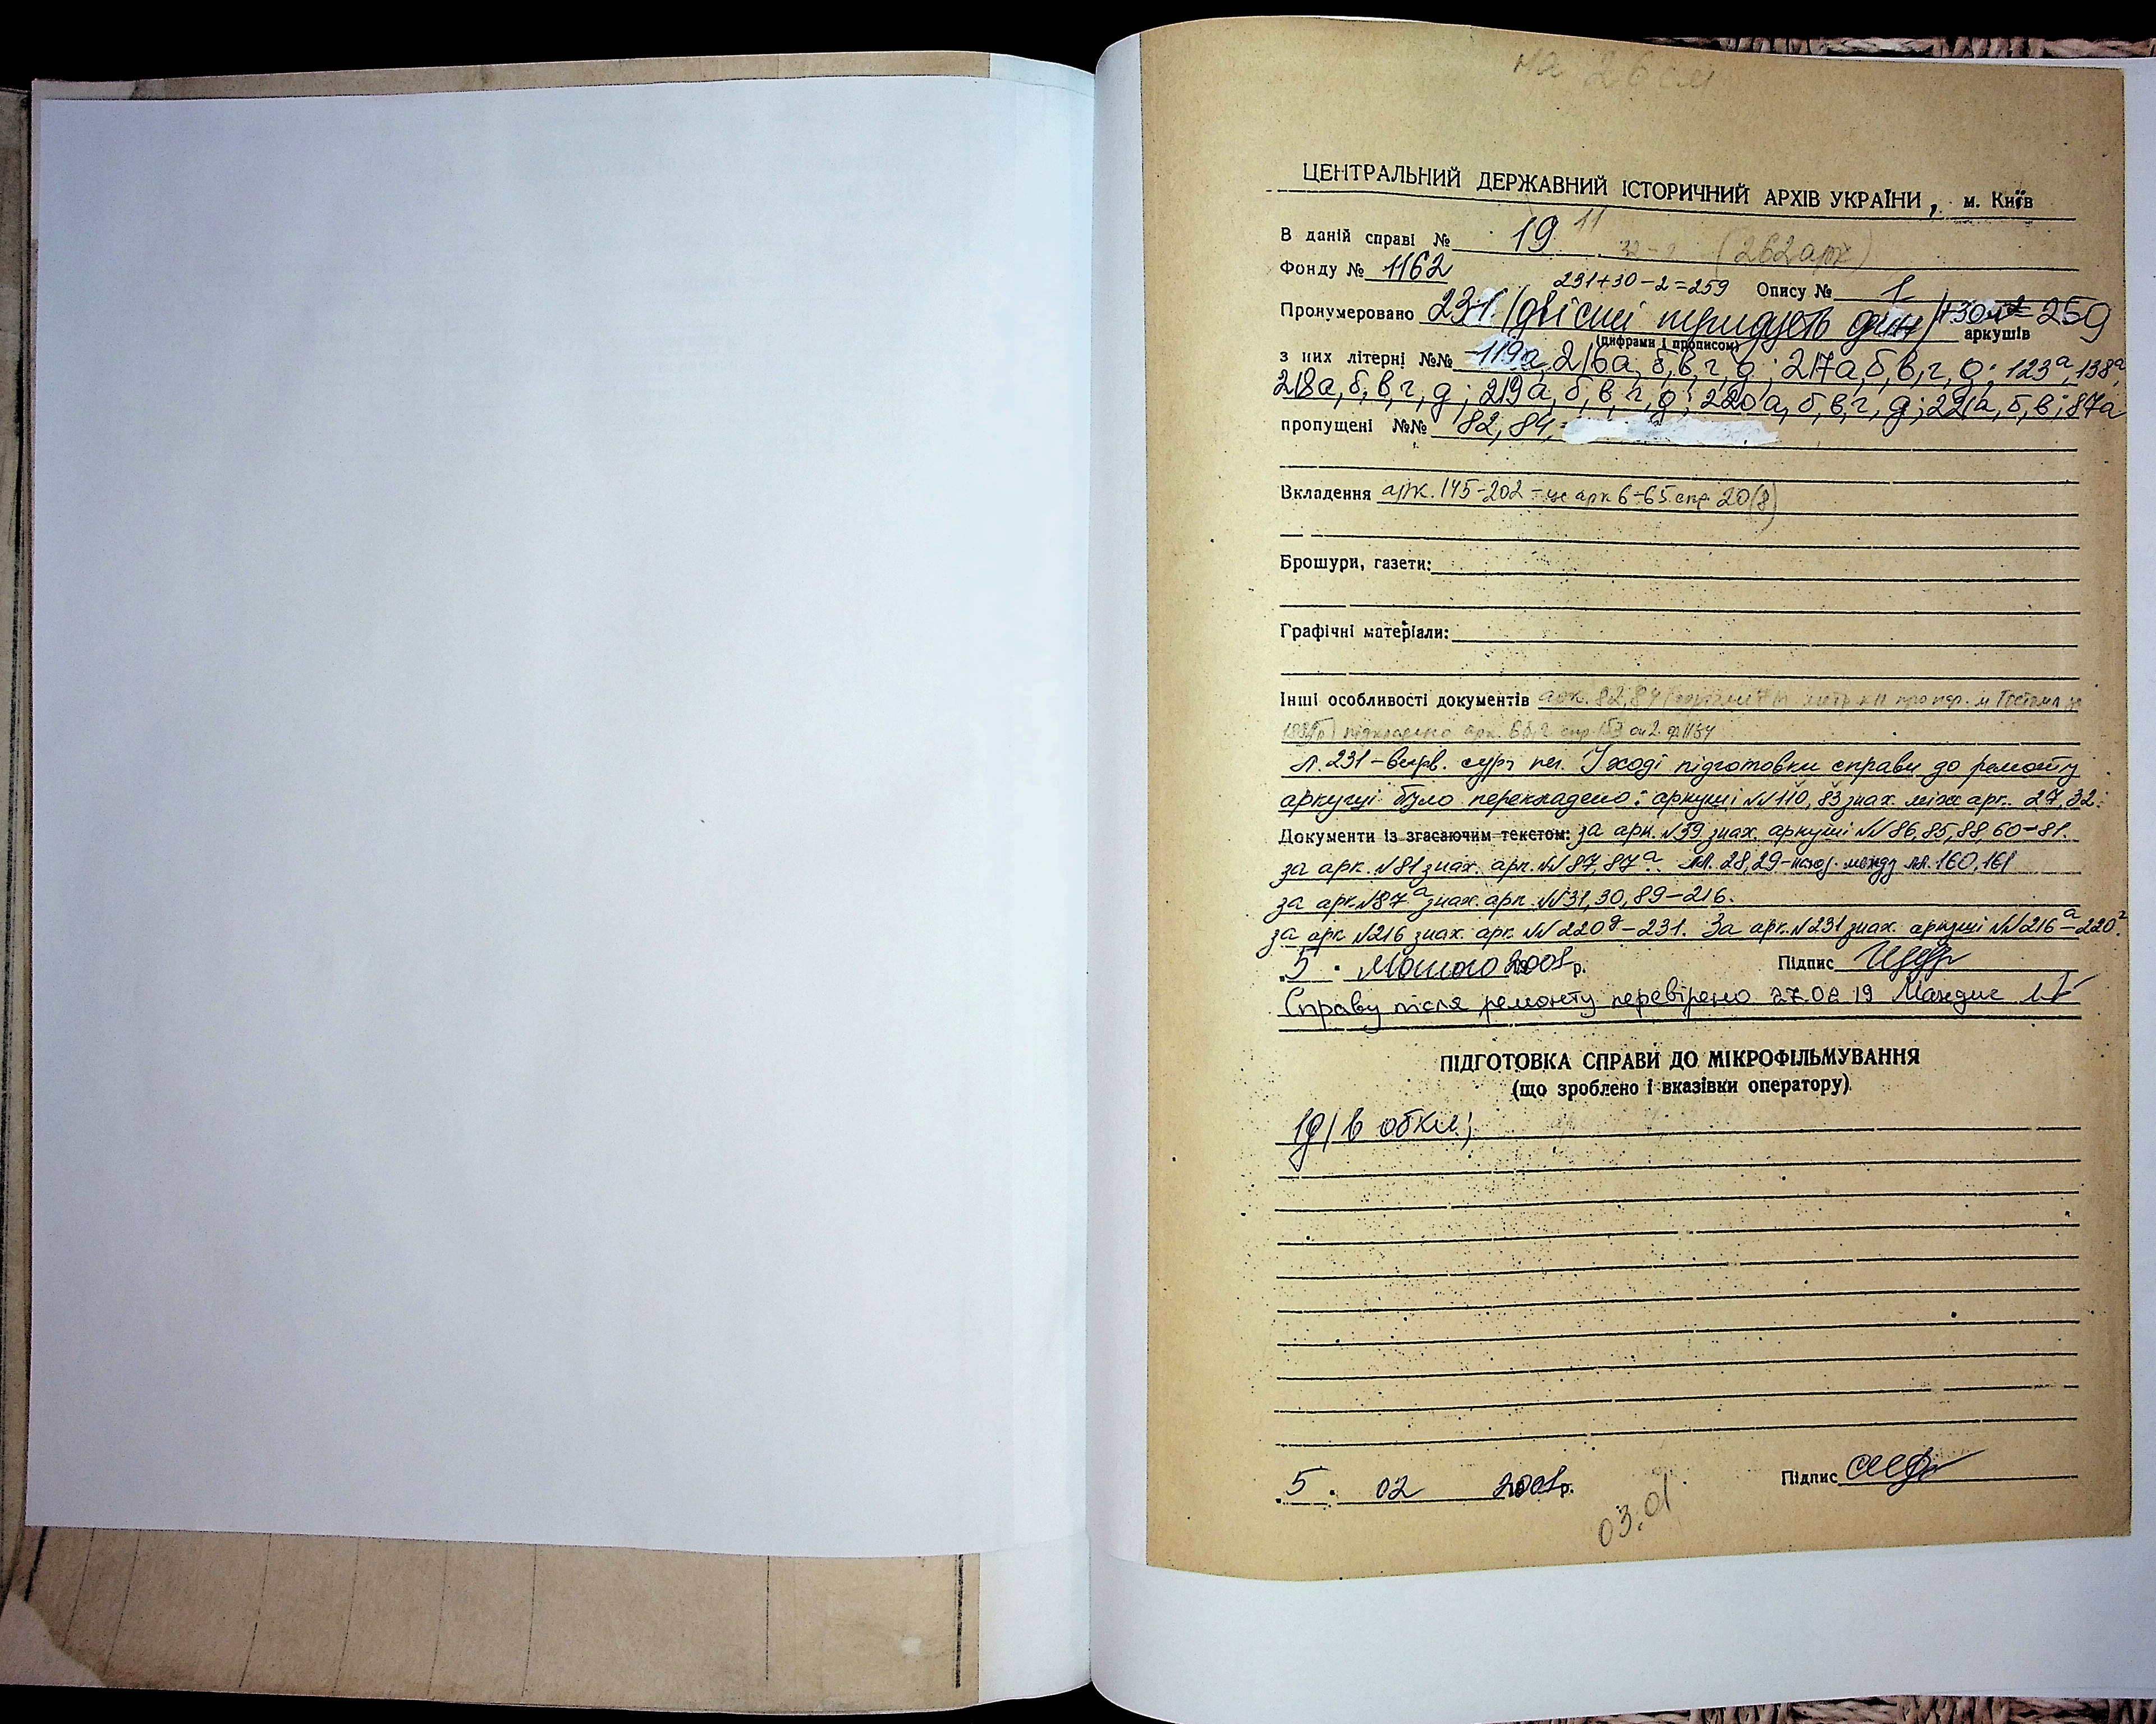 на 26 см
ЦЕНТРАЛЬНИЙ ДЕРЖАВНИЙ ІСТОРИЧНИЙ АРХІВ УКРАЇНИ, м. Київ
В даній справі № 19 11 (262 арк)
Фонду № 1162 231+30-2=259 Опису № 1
Пронумеровано 231 (двісті тридцять один) = 259 аркушів
(цифрами і прописом)
з них літерні №№ 119а, 216а, б, в, г, д; 217а, б, в, г, д; 123а, 138а,
218а, б, в, г, д; 219а, б, в, г, д; 220а, б, в, г, д; 221а, б, в; 87а
пропущені №№ 82, 84,
Вкладення арк. 145-202 - це арк 6-65 спр 20(8)
Брошури, газети:
Графічні матеріали:
Інші особливості документів арк. 82, 84
підкладено арк.
л. 231 - У ході підготовки справи до ремонту
аркуші було перекладено: аркуші №№ 110, 83 знах. між арк. 27, 32.
Документи із згасаючим текстом: за арк. №59 знах. аркуші №№ 86, 85, 88, 60-81.
за арк. №81 знах. арк. №№ 87, 87а. лл. 28, 29 - между лл. 160, 161
за арк. №87а знах. арк. №№ 31, 30, 89-216.
за арк №216 знах. арк. №№ 220д-231. За арк. №231 знах. аркуші №№ 216а-220г.
5. Лютого 2001 р. Підпис
Справу після ремонту перевірено 27.02 19
ПІДГОТОВКА СПРАВИ ДО МІКРОФІЛЬМУВАННЯ
(що зроблено і вказівки оператору)
1д/ в обкл;
5. 02 2001 р. Підпис
03.01.